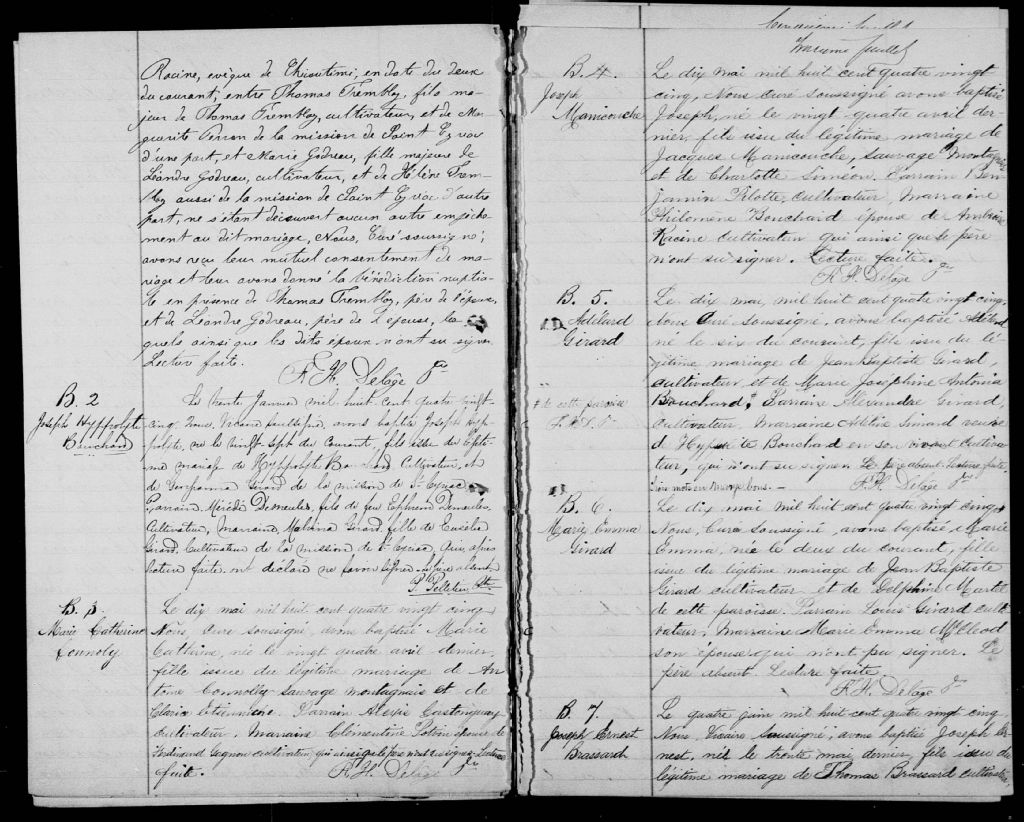 Racine, evêque de Chicoutimi, en date du deux
du courant, entre Thomas Tremblay, fils ma-
jeur de Thomas Tremblay, cultivateur, et de Mar-
guerite Perron de la mission de Saint Cyriac
d'une part, et Marie Godreau, fille majeure de
Léandre Godreau, cultivateur, et de Hélène Trem-
blay aussi de la mission de Saint Cyriac d'autre
part, ne s'étant découvert aucun autre empêche-
ment au dit mariage, Nous, Curé soussigné,
avons reçu leur mutuel consentement de ma-
riage et leur avons donné la bénédiction nuptia-
le en présence de Thomas Tremblay, père de l'époux,
et de Léandre Godreau, père de l'épouse, les
quels ainsi que les dits époux n'ont su signer
Lecture faite.
F. H. Delâge Ptre
B. 2
Joseph Hyppolyte
Bouchard
Le trente Janvier mil huit cent quatre vingt-
cinq, Nous, Vicaire soussigné, avons baptisé Joseph Hyp-
polyte, né le vingt sept du Courant, fils issu du légiti-
me mariage de Hyppolyte Bouchard Cultivateur, et
de Georgianna Girard de la mission de St Cyriac.
Parrain, Mérédé Desmeules, fils de feu Ephrem Desmeules
Cultivateur, Marraine, Malvina Girard, fille de
Girard, Cultivateur de la mission de St Cyriac, qui, après
lecture faite ont déclaré ne savoir signer. Le père absent.
P. Pelletier Ptre
B. 3.
Marie Catherine
Connoly
Le dix mai mil huit cent quatre vingt cinq
Nous, Curé soussigné, avons baptisé Marie
Catherine, née le vingt quatre avril dernier,
fille issue du légitime mariage de An-
toine Connolly sauvage montagnais et de
Clara Etiennene. Parrain Alexis Castonguay
cultivateur. Marraine Clémentine Potvin épouse de
Ferdinand Gagnon cultivateur, qui ainsi que le père n'ont su signer. Lecture
faite.
F. H. Delâge Ptre
feuillet
B. 4.
Joseph
Manicouche
Le dix mai mil huit cent quatre vingt
cinq, Nous Curé soussigné avons baptisé
Joseph, né le vingt quatre avril der-
nier, fils issu du légitime mariage de
Jacques Manicouche, sauvage Montagnais
et de Charlotte Simeon. Parrain Ben-
jamin Pilotte cultivateur, Marraine
Philomène Bouchard épouse de Ambroise
Racine cultivateur qui ainsi que le père
n'ont su signer. Lecture faite.
F. H. Delâge Ptre
B. 5.
Adélard
Girard
Le dix mai, mil huit cent quatre vingt cinq.
Nous Curé soussigné, avons baptisé Adélard
né le six du courant, fils issu du lé-
gitime mariage de Jean Baptiste Girard,
cultivateur et de Marie Joséphine Antonia
Bouchard. Parrain Alexandre Girard,
cultivateur, Marraine Simard veuve
d'Hypolite Bouchard en son vivant cultiva-
teur, qui n'ont su signer. Le père absent. Lecture faite
mots en marge bons. —
F. H. Delâge Ptre
# de cette paroisse
F. H. D. Ptre
B. 6.
Marie Emma
Girard
Le dix mai mil huit cent quatre vingt cinq
Nous, Curé soussigné, avons baptisé, Marie
Emma, née le deux du courant, fille
issue du légitime mariage de Jean Baptiste
Girard cultivateur et de Delphine Martel
de cette paroisse. Parrain Louis Girard culti-
vateur, Marraine Marie Emma McLeod
son épouse qui n'ont pu signer. Le
père absent. Lecture faite
F. H. Delâge Ptre
B. 7.
Joseph Ernest
Brassard
Le quatre juin mil huit cent quatre vingt cinq
Nous, Vicaire soussigné, avons baptisé Joseph Er-
nest, né le trente mai dernier, fils issu du
légitime mariage de Thomas Brassard cultivateur,